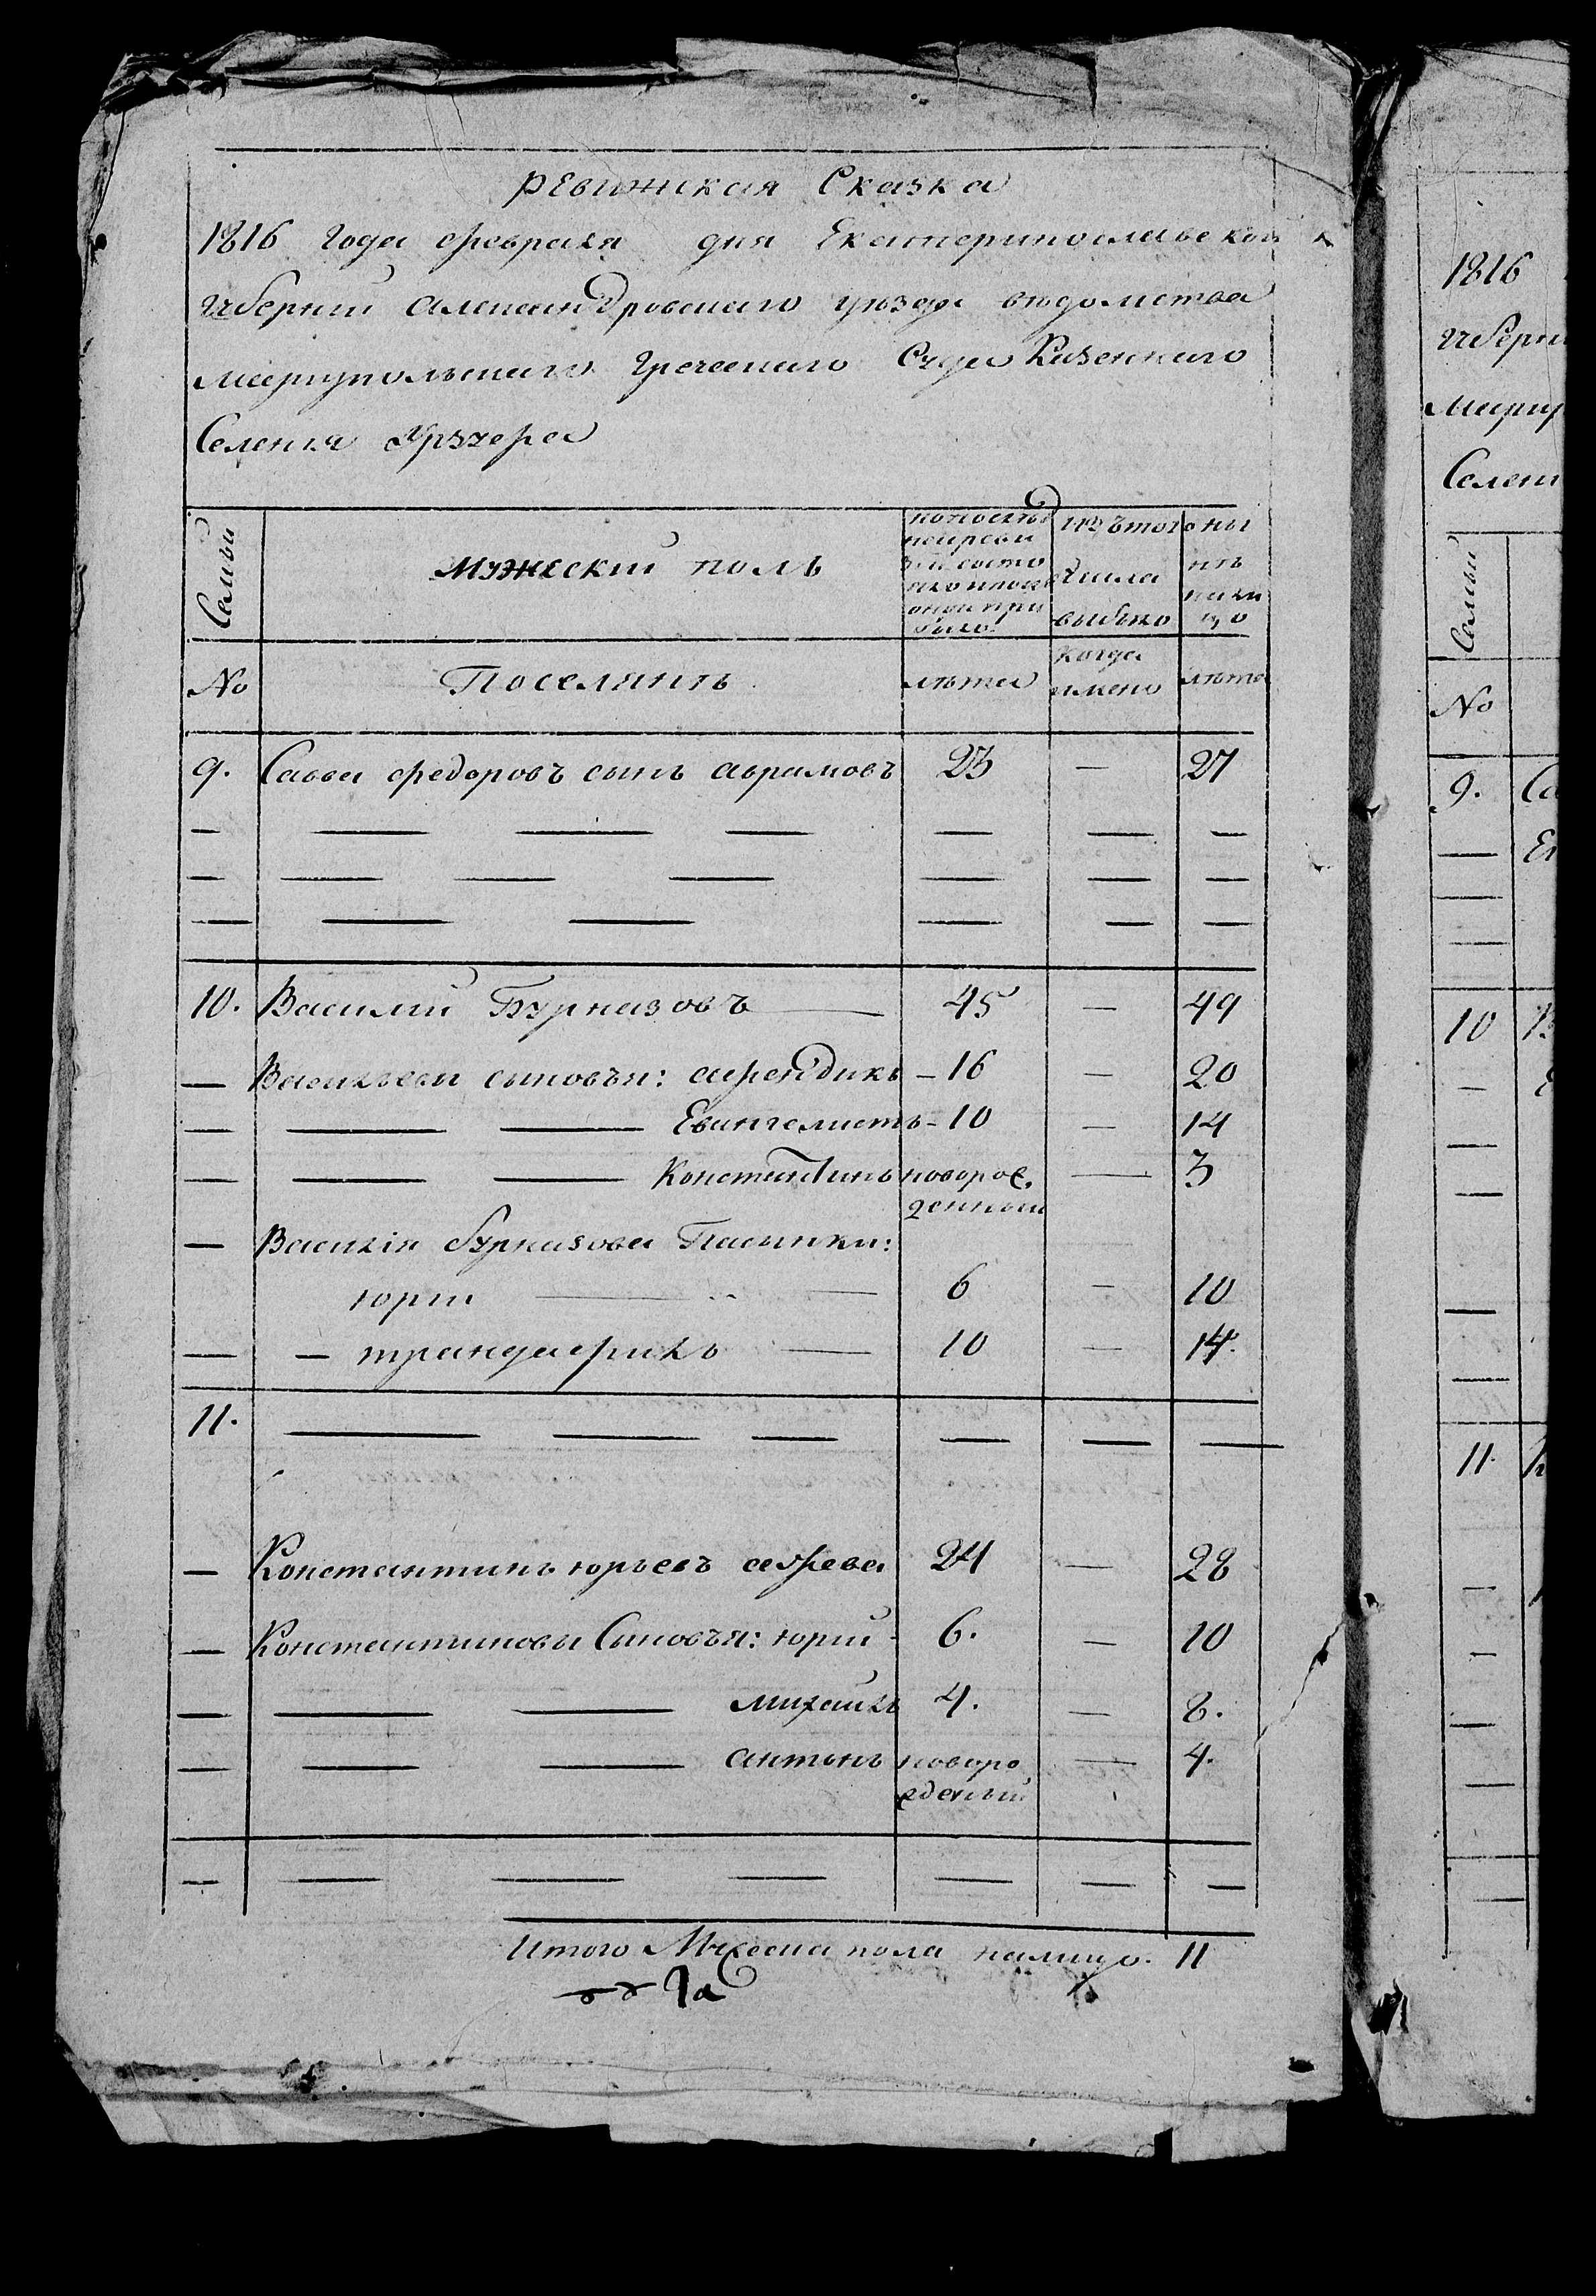 Ревижская Сказка
1816 года февраля дня Екатеринославской
губернии Александровскаго уезда ведомства
Мариупольскаго Греческаго Суда Казеннаго
Селения Урзуфа
Семьи
Мужеский полъ
По последней ревизии состояло и после оной прибыло
Изъ того числа выбыло
Ныне на лицо
№
Поселянъ
лета
Когда имено
лета
9. Савва Федоровъ сынъ Аврамовъ 23 — 27
10. Василий Бурназовъ — 45 — 49
— Васильевы сыновъя: Афендикъ - 16 — 20
— Евангелистъ - 10 — 14
— Константинъ новорож. — 3
денный
— Василия Бурназова Пасынки:
юрии — 6 — 10
— — трандафилъ — 10 — 14.
11.
— Константинъ юрьевъ 24 — 28
— Константиновы Сыновъя: юрий - 6. — 10
— михаилъ 4. — 8.
— антонъ новоро — 4.
жденый
Итого Мужеска пола налицо. 11
1816
губерн
Мариу
Селен
Семьи
№
9. Са
10 В
11.